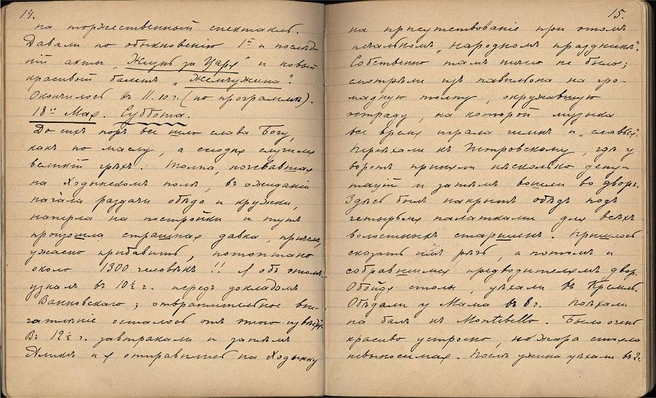 14.
на торжественный спектакль.
Давали по обыкновению 1й и послѣд-
ній акты „Жизнь за Царя" и новый
красивый балетъ „Жемчужина".
Окончилось въ 11.10 ч. (по программѣ).
18го Мая. Суббота.
До сихъ поръ все шло слава Богу,
какъ по маслу, а сегодня случился
великій грѣхъ. Толпа, ночевавшая
на Ходынскомъ полѣ, въ ожиданіи
начала раздачи обѣда и кружки,
наперла на постройки и тутъ
произошла страшная давка, причемъ,
ужасно прибавить, потоптано
около 1300 человѣкъ!! Я объ этомъ
узналъ въ 10½ ч. передъ докладомъ
Ванновскаго; отвратительное впе-
чатлѣніе осталось отъ этого извѣстія.
Въ 12½ ч. завтракали и затѣмъ
Аликсъ и я отправились на Ходынку
15.
на присутствованіе при этомъ
печальномъ „народномъ праздникѣ".
Собственно тамъ ничего не было;
смотрѣли изъ павильона на гро-
мадную толпу, окружавшую
эстраду, на которой музыка
все время играла гимнъ и „славься".
Переѣхали къ Петровскому, гдѣ у
воротъ приняли нѣсколько депу-
тацій и затѣмъ вошли во дворъ.
Здѣсь былъ накрытъ обѣдъ подъ
четырьмя палатками для всѣхъ
волостныхъ старшинъ. Пришлось
сказать имъ рѣчь, а потомъ и
собравшимся предводителямъ двор.
Обойдя столы, уѣхали въ Кремль.
Обѣдали у Мама въ 8 ч. Поѣхали
на балъ къ Montebello. Было очень
красиво устроено, но жара стояла
невыносимая. Послѣ ужина уѣхали въ 2 ч.